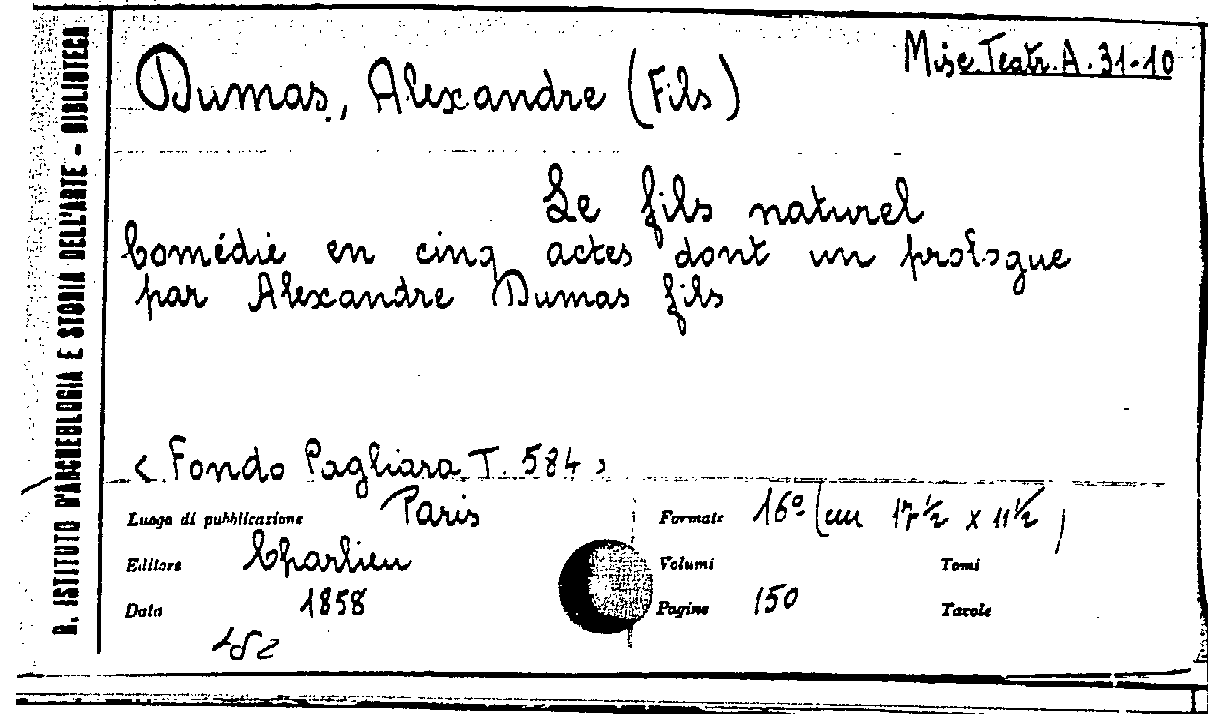 Misc. Teatr. A. 31-10
Dumas, Alexandre (Fils)
Le fils naturel
Comédie en cinq actes dont un prologue
par Alexandre Dumas fils
< Fondo Pagliara T. 584 >
Luogo di pubblicazione Paris
Formato 16º (cm 17 ½ x 11 ½)
Editore Charlieu
Volumi
Tomi
Data 1858
Pagine 150
Tavole
R. ISTITUTO D'ARCHEOLOGIA E STORIA DELL'ARTE - BIBLIOTECA